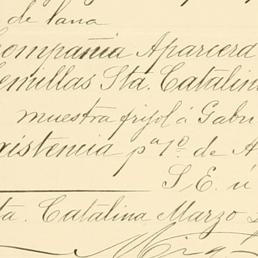 de lana
Compañia Aparcera
Semillas Sta. Catalina
muestra frijol á Gabri
existencia pa 1o. de A
S. E. ú
ta. Catalina Marzo